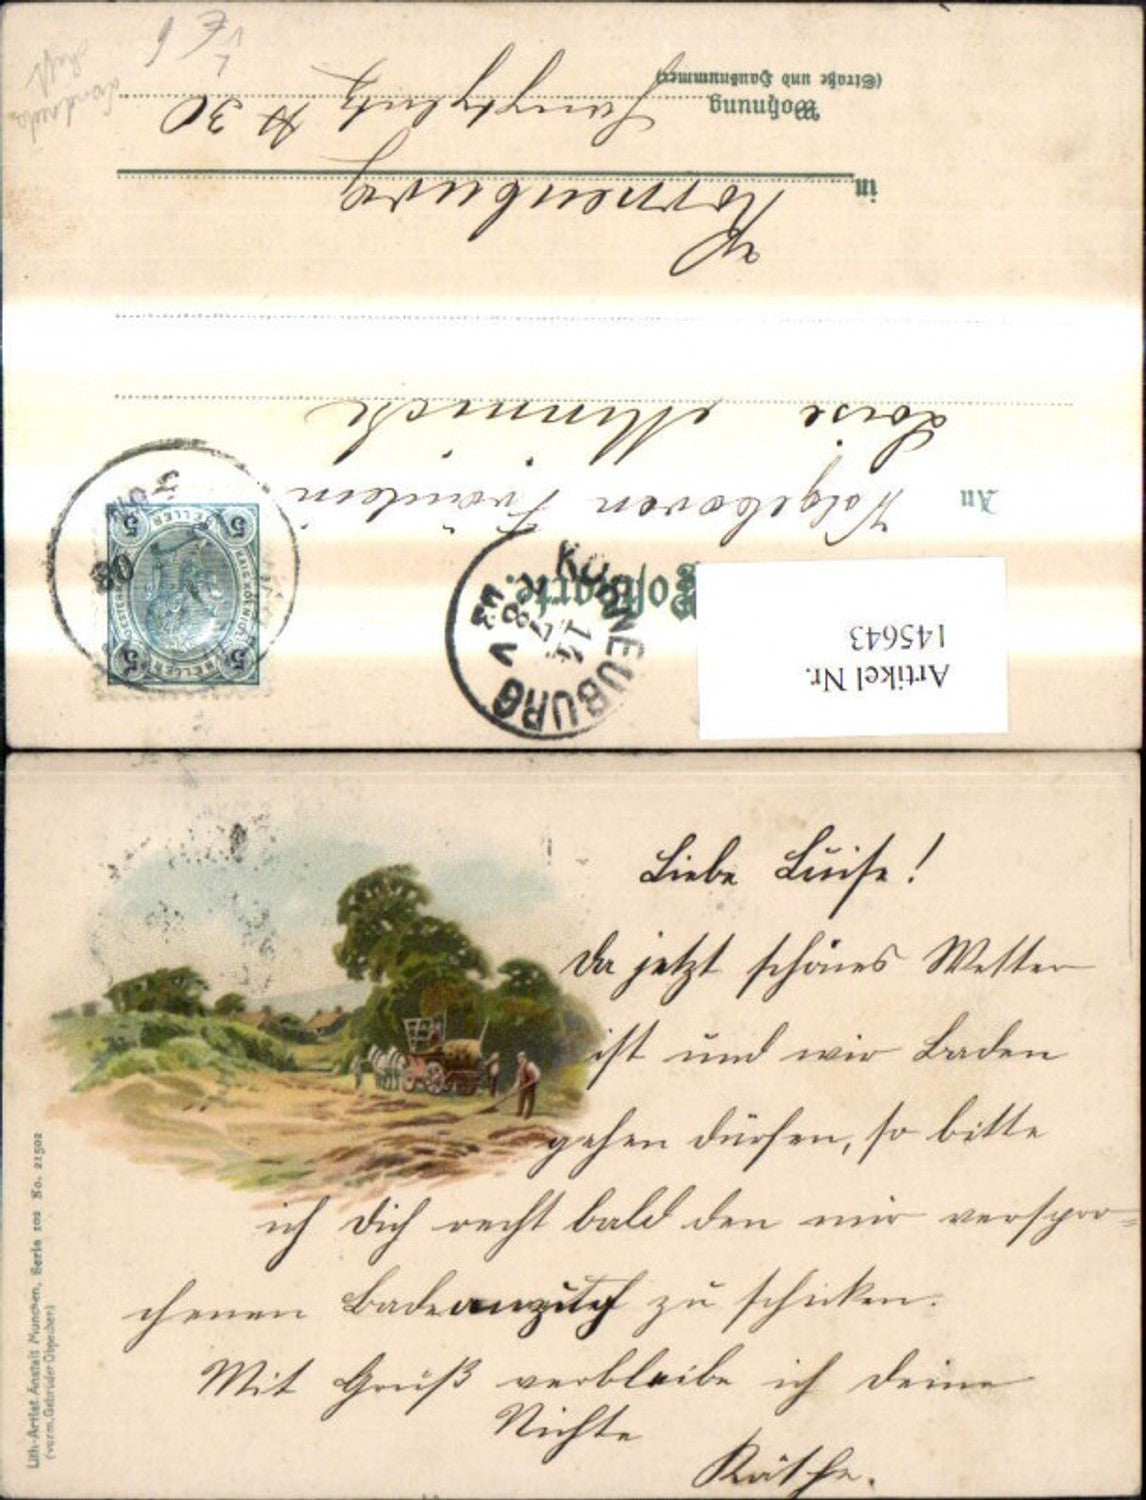 Postkarte.
Artikel Nr.
145643
KORNEUBURG
An Wolgeboren Fräulein
Loise
in Korneuburg
Wohnung № 30
(Straße und Hausnummer)
Liebe Luise!
Da jetzt schönes Wetter
ist und wir baden
gehen dürfen, so bitte
ich Dich recht bald den mir verspro-
chenen Badeanzug zu schicken.
Mit Gruß verbleibe ich deine
Nichte
Käthe.
Lith.-Artist. Anstalt München, Serie 102 No. 21502
(vorm. Gebrüder Obpacher)